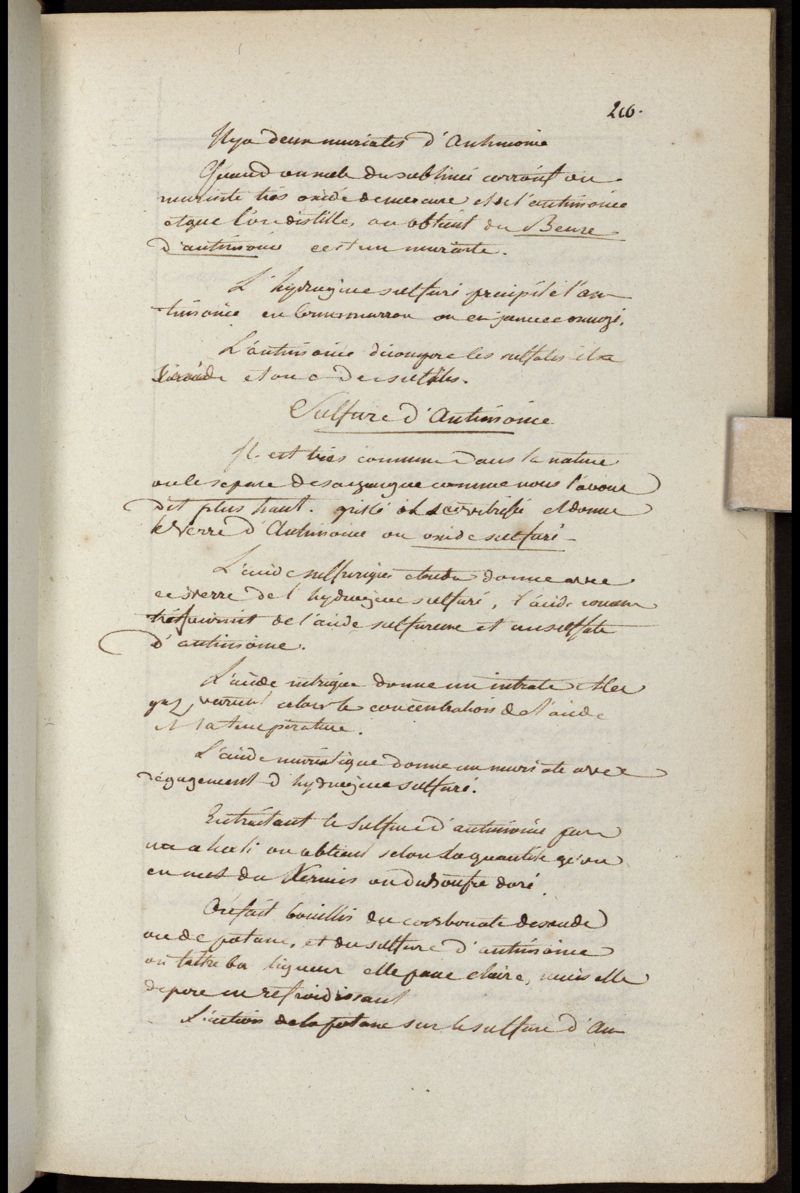 216.
Il y a deux muriates d'Antimoine
Quand on mele du sublimé corrosif ou
muriate très oxidé de mercure et de l'antimoine
et que l'on distille, on obtient du Beure
d'antimoine c'est un muriate.
L'hydrogène sulfuré précipité l'an-
timoine en brun marron ou en jaune orangé.
L'antimoine décompose les sulfates il
et on a des sulfites.
Sulfure d'Antimoine
Il est très commun dans la nature
on le separe de sa gangue comme nous l'avons
dit plus haut. grillé il se vitrifie et donne
le Verre d'Antimoine ou oxide sulfuré
L'acide sulfurique étendu donne avec
ce verre de l'hydrogène sulfuré, l'acide concen
tré fournit de l'acide sulfureux et un sulfate
d'antimoine.
L'acide nitrique donne un nitrate et les
gaz varient selon la concentration de l'acide
et la température.
L'acide muriatique donne un muriate avec
dégagement d'hydrogène sulfuré.
En traitant le sulfure d'antimoine par
un alkali on obtient selon la quantité qu'on
en met du Kermès ou du soufre doré
On fait bouillir du carbonate de soude
ou de potasse, et du sulfure d'antimoine
on filtre la liqueur elle passe claire, mais elle
depose en refroidissant
L'action de la potasse sur le sulfure d'An-